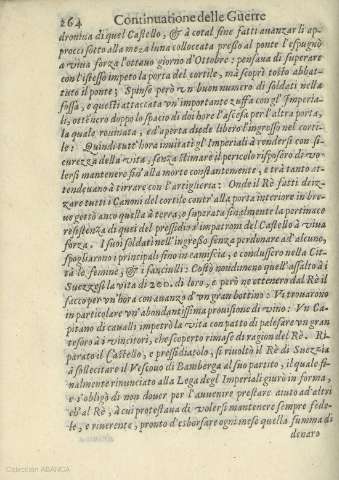 264 Continuatione delle Guerre
dronita di quel Castello, & à cotal fine fatti auanzar li ap-
procci sotto alla meza luna colloccata presso al ponte l'espugnò
a viua forza l'ottauo giorno d'Ottobre: pensaua di superare
con l'istesso impeto la porta del cortile, mà scoprì tosto abbat-
tuto il ponte; Spinse però vn buon numero di soldati nella
fossa, e questi attaccata vn'importante zuffa con gl'Imperia-
li, ottenero doppo lo spacio di doi hore l'ascesa per l'altra porta,
la quale rouinata, ed aperta diede libero l'ingresso nel corti-
le: Quindi tute' hora inuitati gl'Imperiali à rendersi con si-
curezza della vita, senza stimare il pericolo risposero di vo-
lersi mantenere fin' alla morte constantemente, e trà tanto at-
tendeuano à tirrare con l'artiglieria: Onde il Rè fatti driz-
zare tutti i Canoni del cortile contr'alla porta interiore in bre-
ue gettò anco quella à terra, e superata finalmente la pertinace
resistenza di quei del pressidio s'impatronì del Castello à viua
forza. I suoi soldati nell'ingresso senza perdonare ad alcuno,
spogliarono i principali sino in camiscia, e condussero nella Cit-
tà le femine, & i fanciulli: Costò nondimeno quell'assalto à i
Suezzesi la vita di 200. di loro, e però ne ottenero dal Rè il
sacco per vn hora con auanzo d'vn gran bottino: Vi trouarono
in particolare vn'abondantissima prouisione di vino: Vn Ca-
pitano di caualli impetrò la vita con patto di palesare vn gran
tesoro à i vincitori, che scoperto rimase di ragion del Rè. Ri-
parato il Castello, e pressidiatolo, si riuoltò il Rè di Suezzia
à sollecitare il Vescouo di Bamberga al suo partito, il quale fi-
nalmente rinunciato alla Lega degl'Imperiali giurò in forma,
e s'obligò di non douer per l'auuenire prestare aiuto ad altri
ch'al Rè, à cui protestaua di volersi mantenere sempre fede-
le, e riuerente, pronto d'esborsare ogni mese quella summa di
denaro
Colección ABANCA